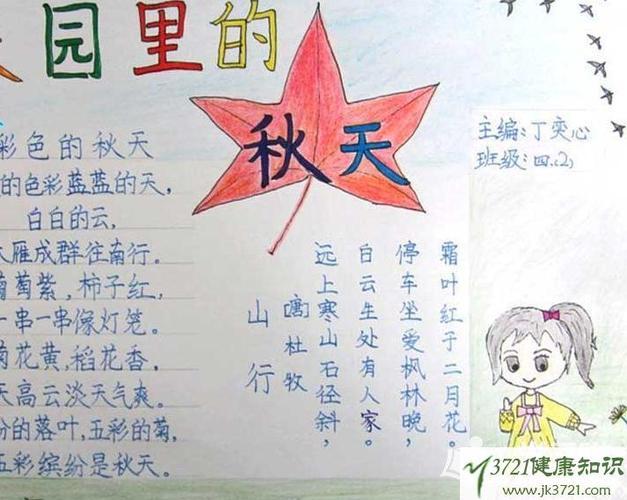 园里的
秋天
主编:丁奕心
班级:四.(2)
彩色的秋天
的色彩蓝蓝的天,
白白的云,
大雁成群往南行。
葡萄紫,柿子红,
一串一串像灯笼。
菊花黄,稻花香,
天高云淡天气爽。
纷的落叶,五彩的菊,
五彩缤纷是秋天。
山行
唐 杜牧
远上寒山石径斜,
白云生处有人家。
停车坐爱枫林晚,
霜叶红于二月花。
3721健康知识
www.jk3721.com